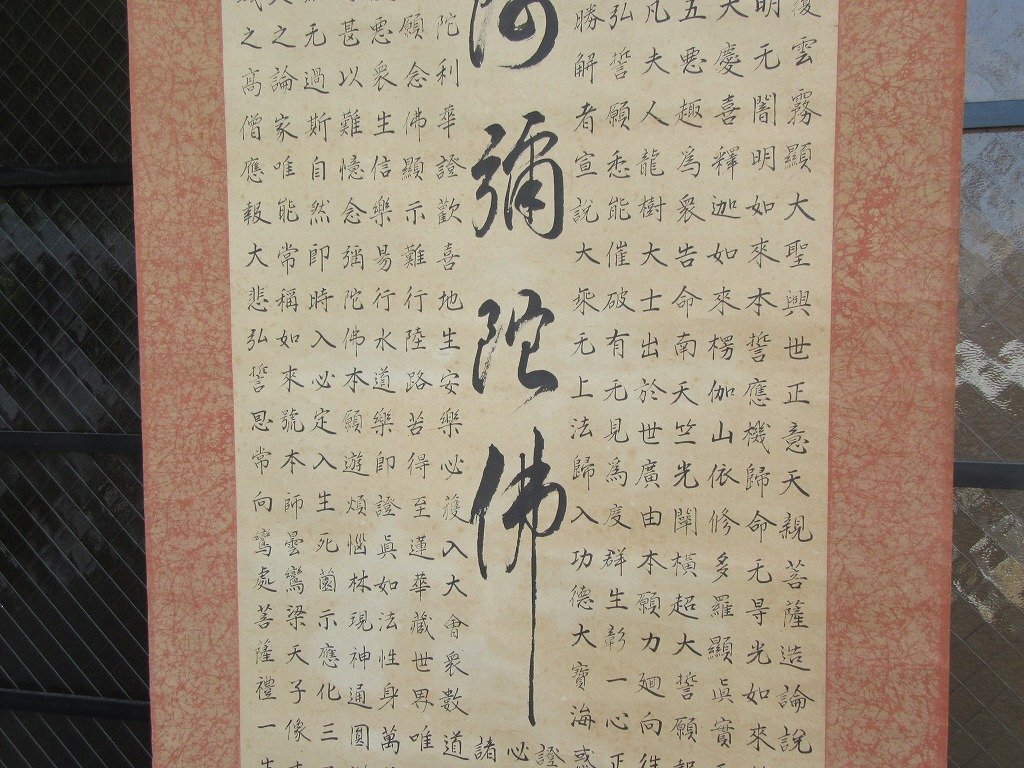 雲霧顯大聖興世正意天親菩薩造論說
明无闇明如來本誓應機歸命无㝵光如來
大慶喜釋迦如來楞伽山依修多羅顯眞實
五惡趣爲衆告命南天竺光闡橫超大誓願
凡夫人龍樹大士出於世廣由本願力廻向往
弘誓願悉能催破有无見爲度群生彰一心正
勝解者宣說大乘无上法歸入功德大寶海惑
證
阿彌陀佛
必
諸
陀利華證歡喜地生安樂必獲入大會衆數道
願念佛顯示難行陸路苦得至蓮華藏世界唯
惡衆生信樂易行水道樂即證眞如法性身萬
甚以難憶念彌陀佛本願遊煩惱林現神通圓
无過斯自然即時入必定入生死薗示應化三
之論家唯能常稱如來號本師曇鸞梁天子像
之高僧應報大悲弘誓恩常向鸞處菩薩禮一